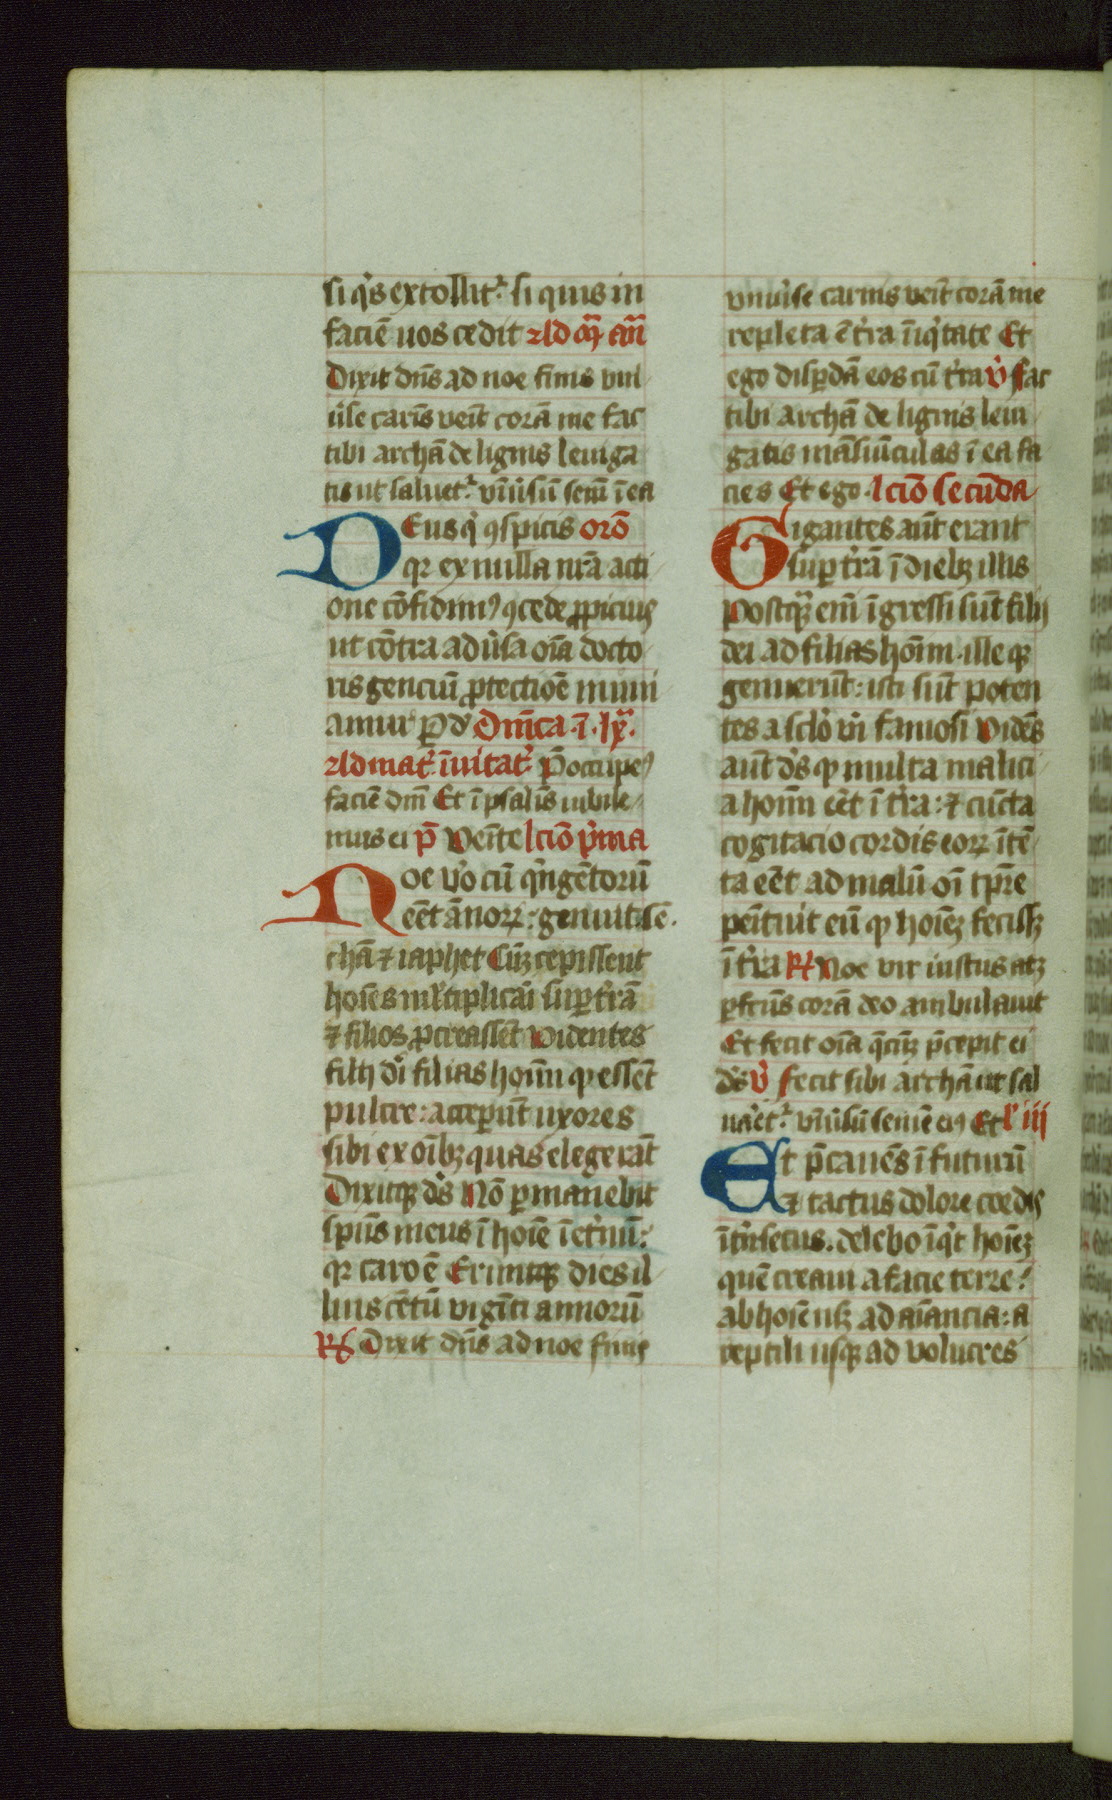 si q̾s extollit᷑ si quis in
faciē uos cedit ald q̄ᷓ añ
Dixit dn̄s ad noe finis vni
u̾se carīs veīt corā me fac
tibi archā de lignis leuiga
tis ut saluet᷑ vniu̾sū semē ī ea
Deus q̾ ꝯspicis orō
qꝛ ex nulla nrā acti
one cōfidimꝰ ꝯcede ꝓpicius
ut cōtra adu̾sa oīa docto
ris genciū ꝓtectiōe muni
amur ꝑ dō Dn̄ica ī lxᷓ
ad mat᷑ īuitat᷑ P̄occupeꝰ
faciē dn̄i Et ī psalīs iubile
mus ei p̄ Veīte lcīo p̾ma
Noe v̾o cū q̾ngētorū
eēt ānoꝝ genuit sē
chā ⁊ iaphet Cūqꝫ cepissent
hoīes ml̾tiplicāi suꝑ t̾rā
⁊ filios ꝓcreassēt Videntes
filij dī filias hoīm ꝙ essēt
pulcre acceꝑūt uxores
sibi ex oībꝫ quas elegerāt
Dixitqꝫ dš Nō ꝑmanebit
spūs meus ī hoīe ī et̾nū
qꝛ caro ē Erūtqꝫ dies il
lius cētū vigīti annorū
℟ Dixit dn̄s ad noe finis
vniu̾se carnis veīt corā me
repleta ē t̾ra īiq̾tate Et
ego disꝑdā eos cū t̾ra V̾ Fac
tibi archā de lignis leui
gatis māsiūculas ī ea fa
cies Et ego lcīo secūda
Gigantes aūt erant
suꝑ t̾rā ī diebꝫ illis
Postqᷓꝫ enī īgressi sūt filij
dei ad filias hoīm ille qꝫ
genuerūt isti sūt poten
tes a sclo vi̾ famosi Vidēs
aūt dš ꝙ multa malici
a hoīm eēt ī t̾ra ⁊ cūcta
cogitacio cordis eoꝝ ītē
ta eēt ad malū oī tp̄re
penītuit eū ꝙ hoīeꝫ fecissꝫ
ī t̾ra ℟ Noe vir iustus atqꝫ
ꝑfctūs corā deo ambulauit
Et fecit oīa q̄cūqꝫ p̄cepit ei
dš V̾ Fecit sibi archā ut sal
uar̾et᷑ vniu̾sū semē eiꝰ Et l' iij
Et p̄cauēs ī futurū
⁊ tactus dolore cordis
īt̾nsecus delebo īq̾t hoīeꝫ
quē creaui a facie terre
ab hoīe usqꝫ ad aīancia a
reptili usqꝫ ad volucres